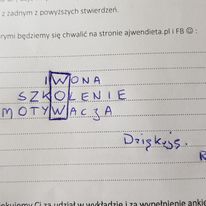 z żadnym z powyższych stwierdzeń.
rymi będziemy się chwalić na stronie ajwendieta.pl i FB ☺ :
IWONA
SZKOLENIE
MOTYWACJA
Dziękuję.
R
ękujemy Ci za udział w wykładzie i za wypełnienie ankie